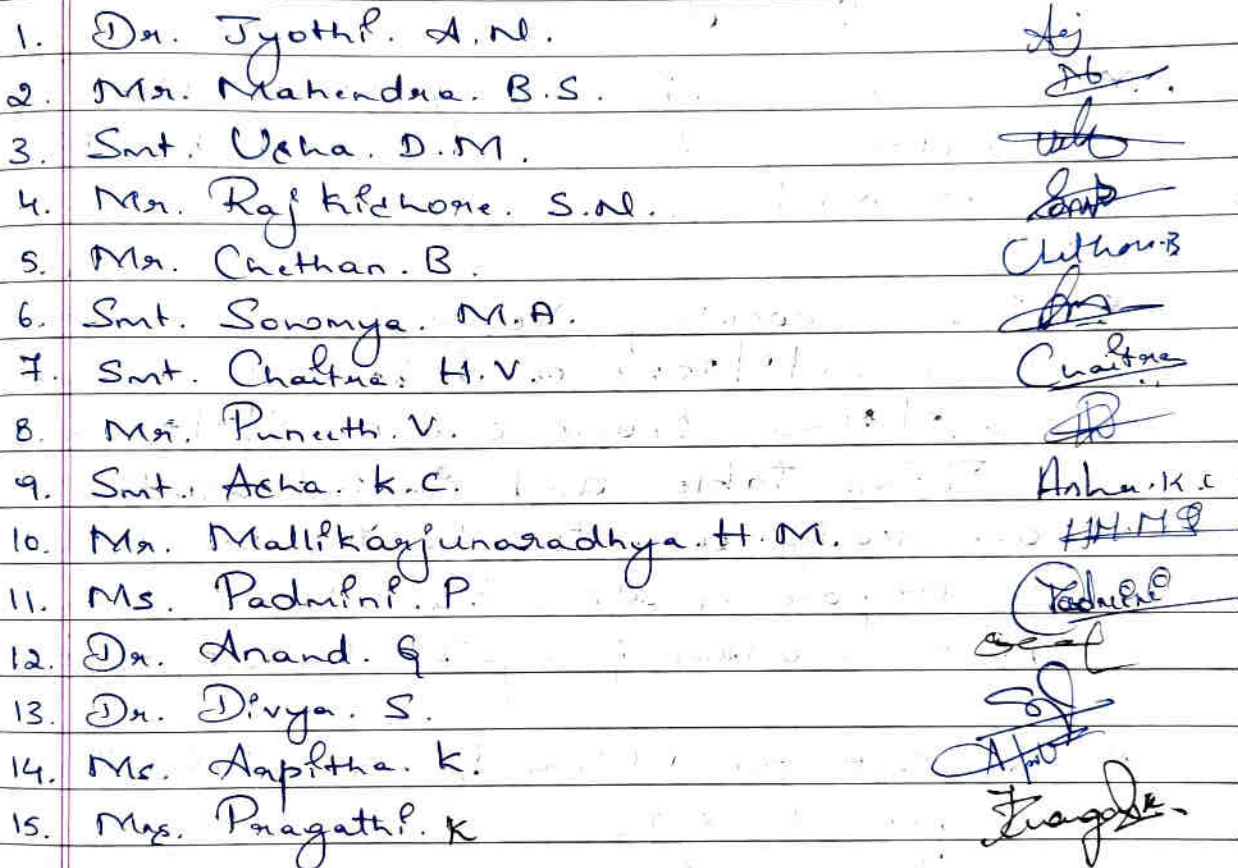 1. Dr. Jyothi. A.N.
2. Mr. Mahendra. B.S.
3. Smt. Usha. D.M.
4. Mr. Raj Kishore. S.N.
5. Mr. Chethan. B. Chethan.B
6. Smt. Sowmya. M.A.
7. Smt. Chaitra. H.V. Chaitra
8. Mr. Puneeth. V.
9. Smt. Asha. K.C. Asha.K.C
10. Mr. Mallikarjunaradhya. H.M.
11. Ms. Padmini. P. Padmini
12. Dr. Anand. G.
13. Dr. Divya. S.
14. Ms. Arpitha. K.
15. Mrs. Pragathi. K